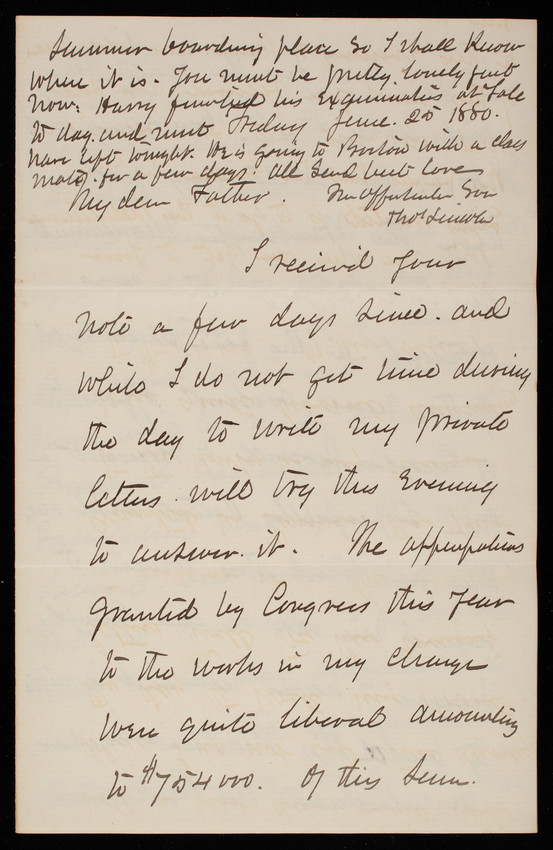 Summer boarding place so I shall know
where it is. You must be pretty lonely just
now. Harry finished his Examination at Yale
to day. and must
Friday June. 25 1880.
have left tonight. He is going to Boston with a class
mate. for a few days. All send best love
My dear Father. Your Affectionate Son
Thos Lincoln
I received your
note a few days since. and
while I do not get time during
the day to write my private
letters. will try this Evening
to answer. it. The appropriations
granted by Congress this year
to the works in my charge
were quite liberal amounting
to $754000. Of this sum.